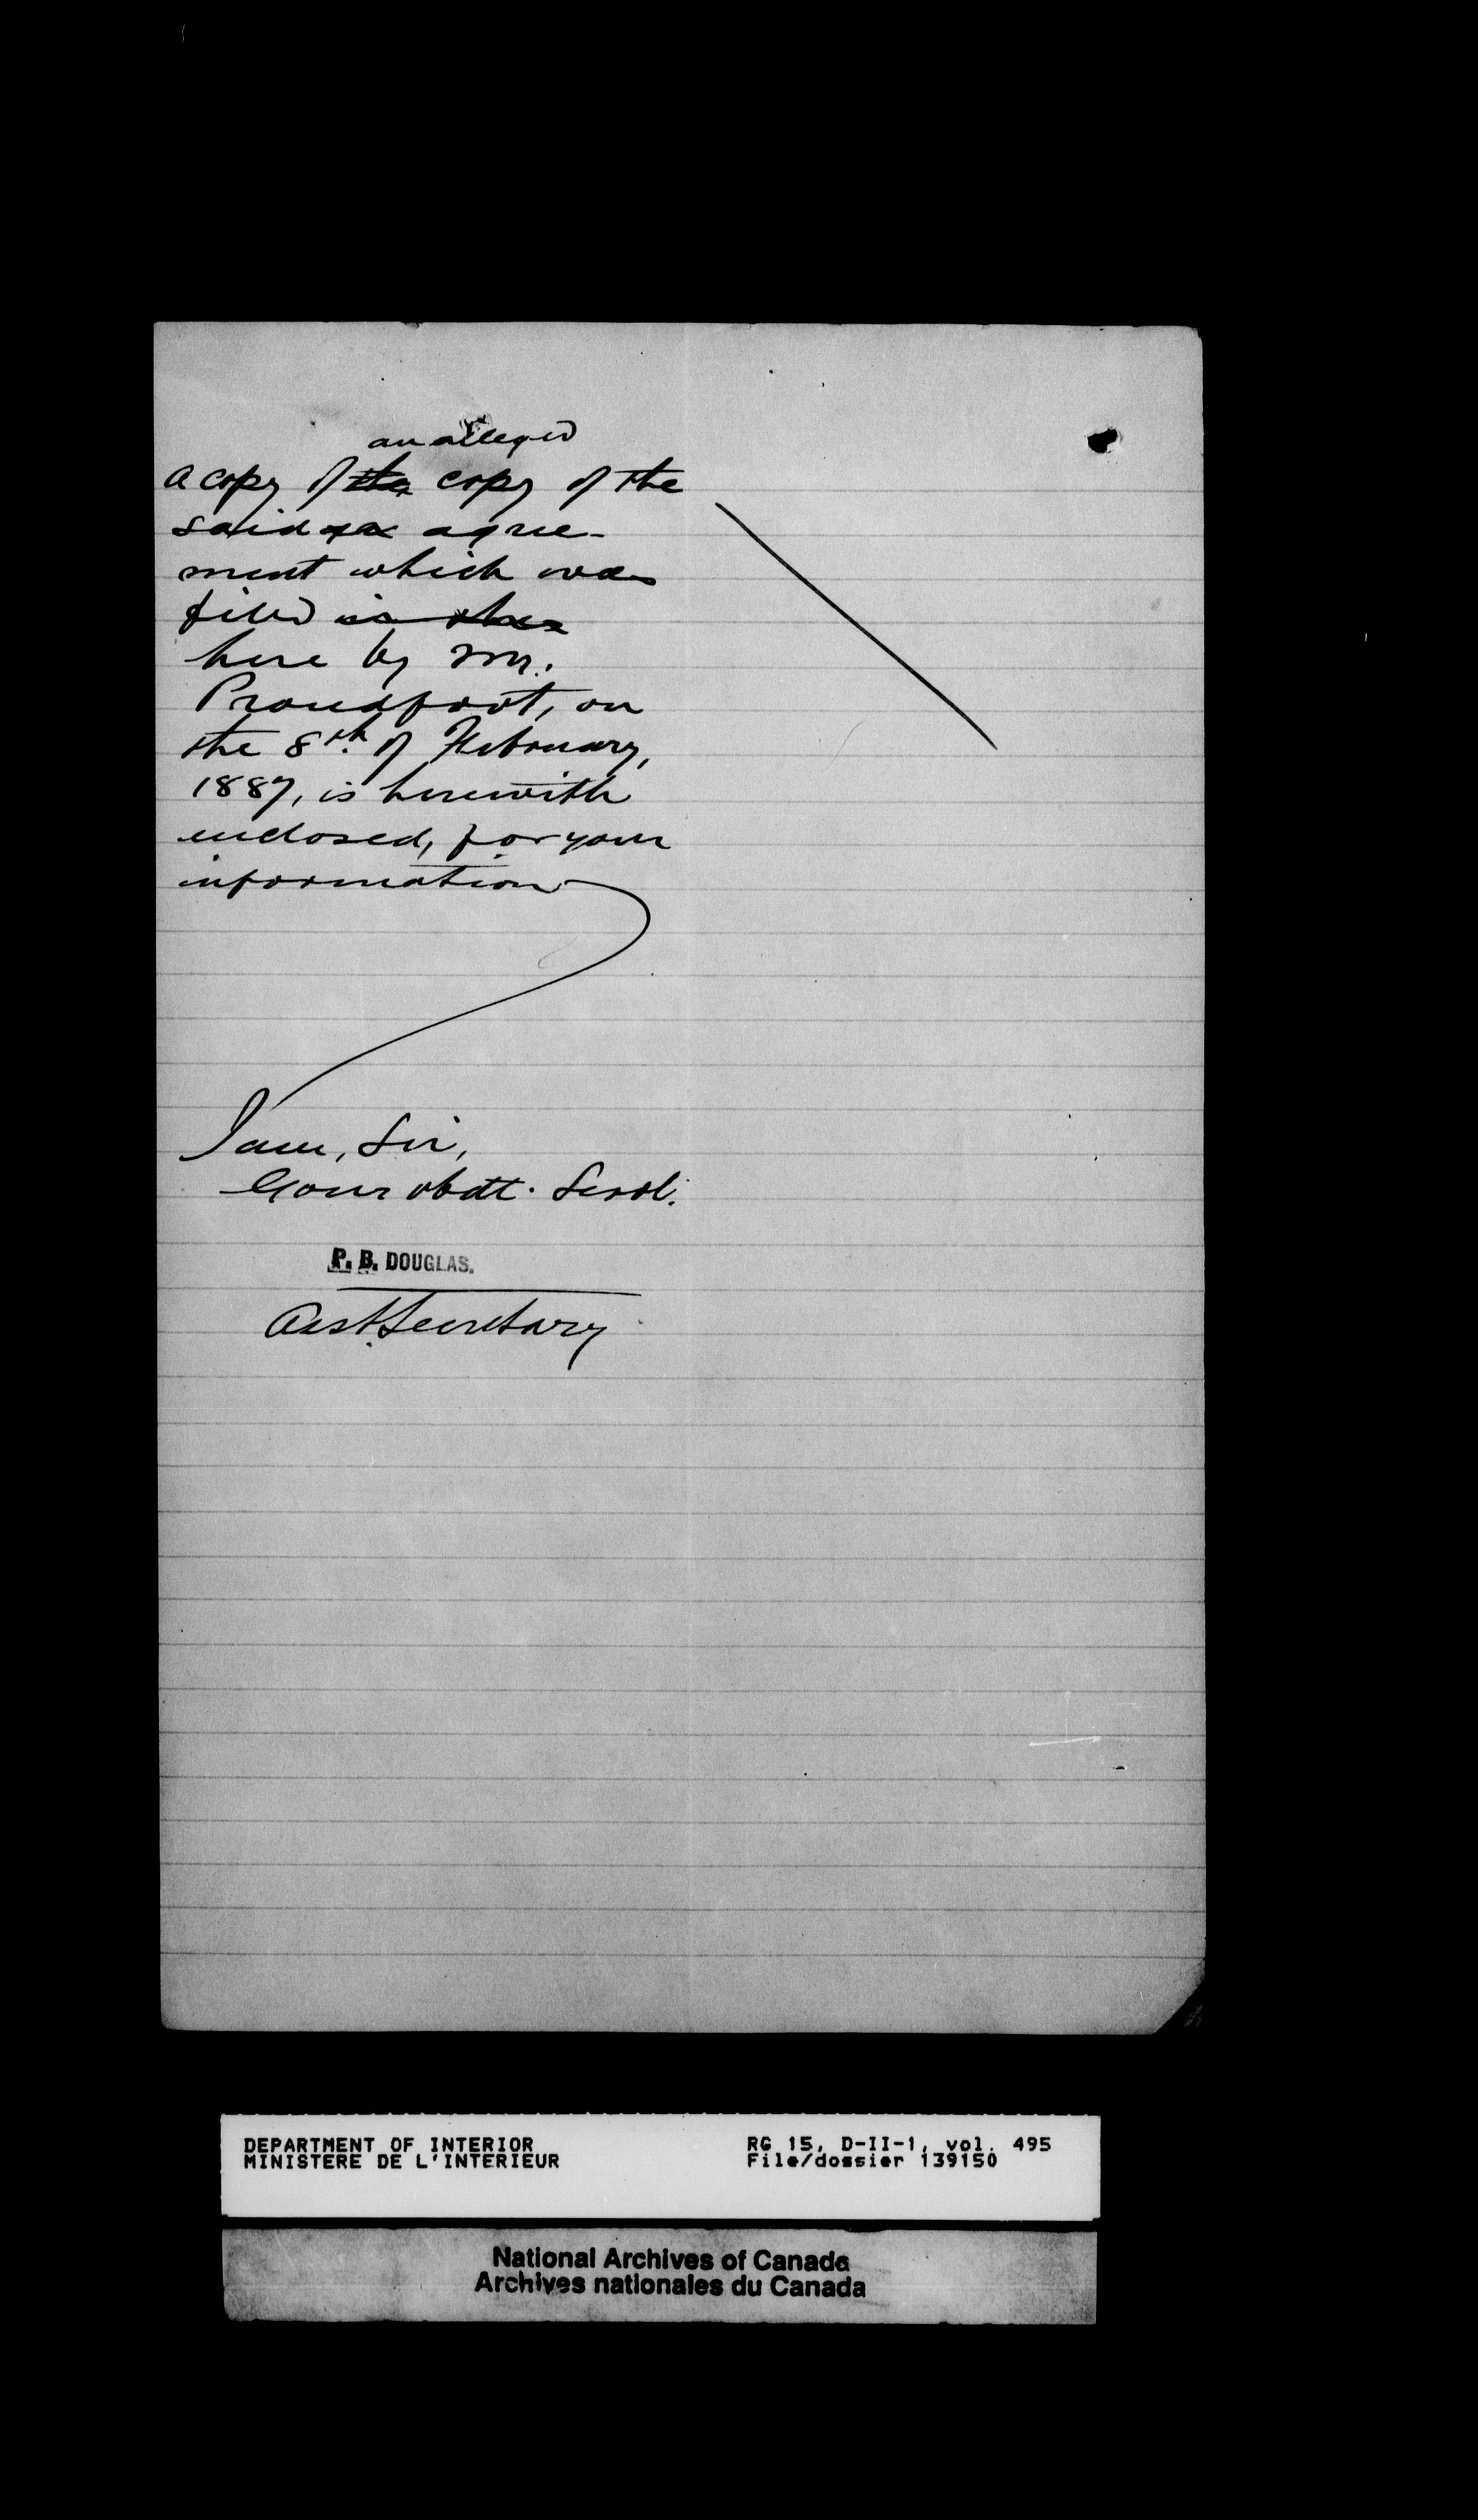 an alleged
a copy of the copy of the
said agree-
ment which was
filed in the
here by Mr.
Proudfoot, on
the 8th. of February,
1887, is herewith
enclosed, for your
information
I am, Sir,
Your obdt. Servt.
P. B. DOUGLAS.
Asst. Secretary
DEPARTMENT OF INTERIOR
MINISTERE DE L'INTERIEUR
RG 15, D-II-1, vol. 495
File/dossier 139150
National Archives of Canada
Archives nationales du Canada